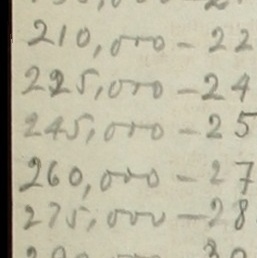 210,000 - 22
225,000 - 24
245,000 - 25
260,000 - 27
275,000 - 28